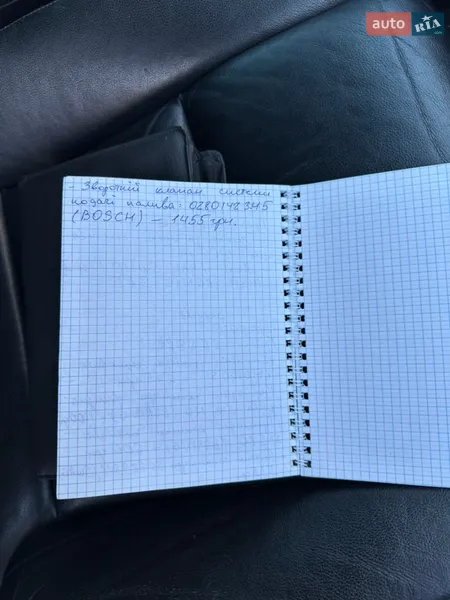 auto RIA
.com
- Зворотній клапан системи
подачі палива: 0280142345
(BOSCH) – 1455 грн.